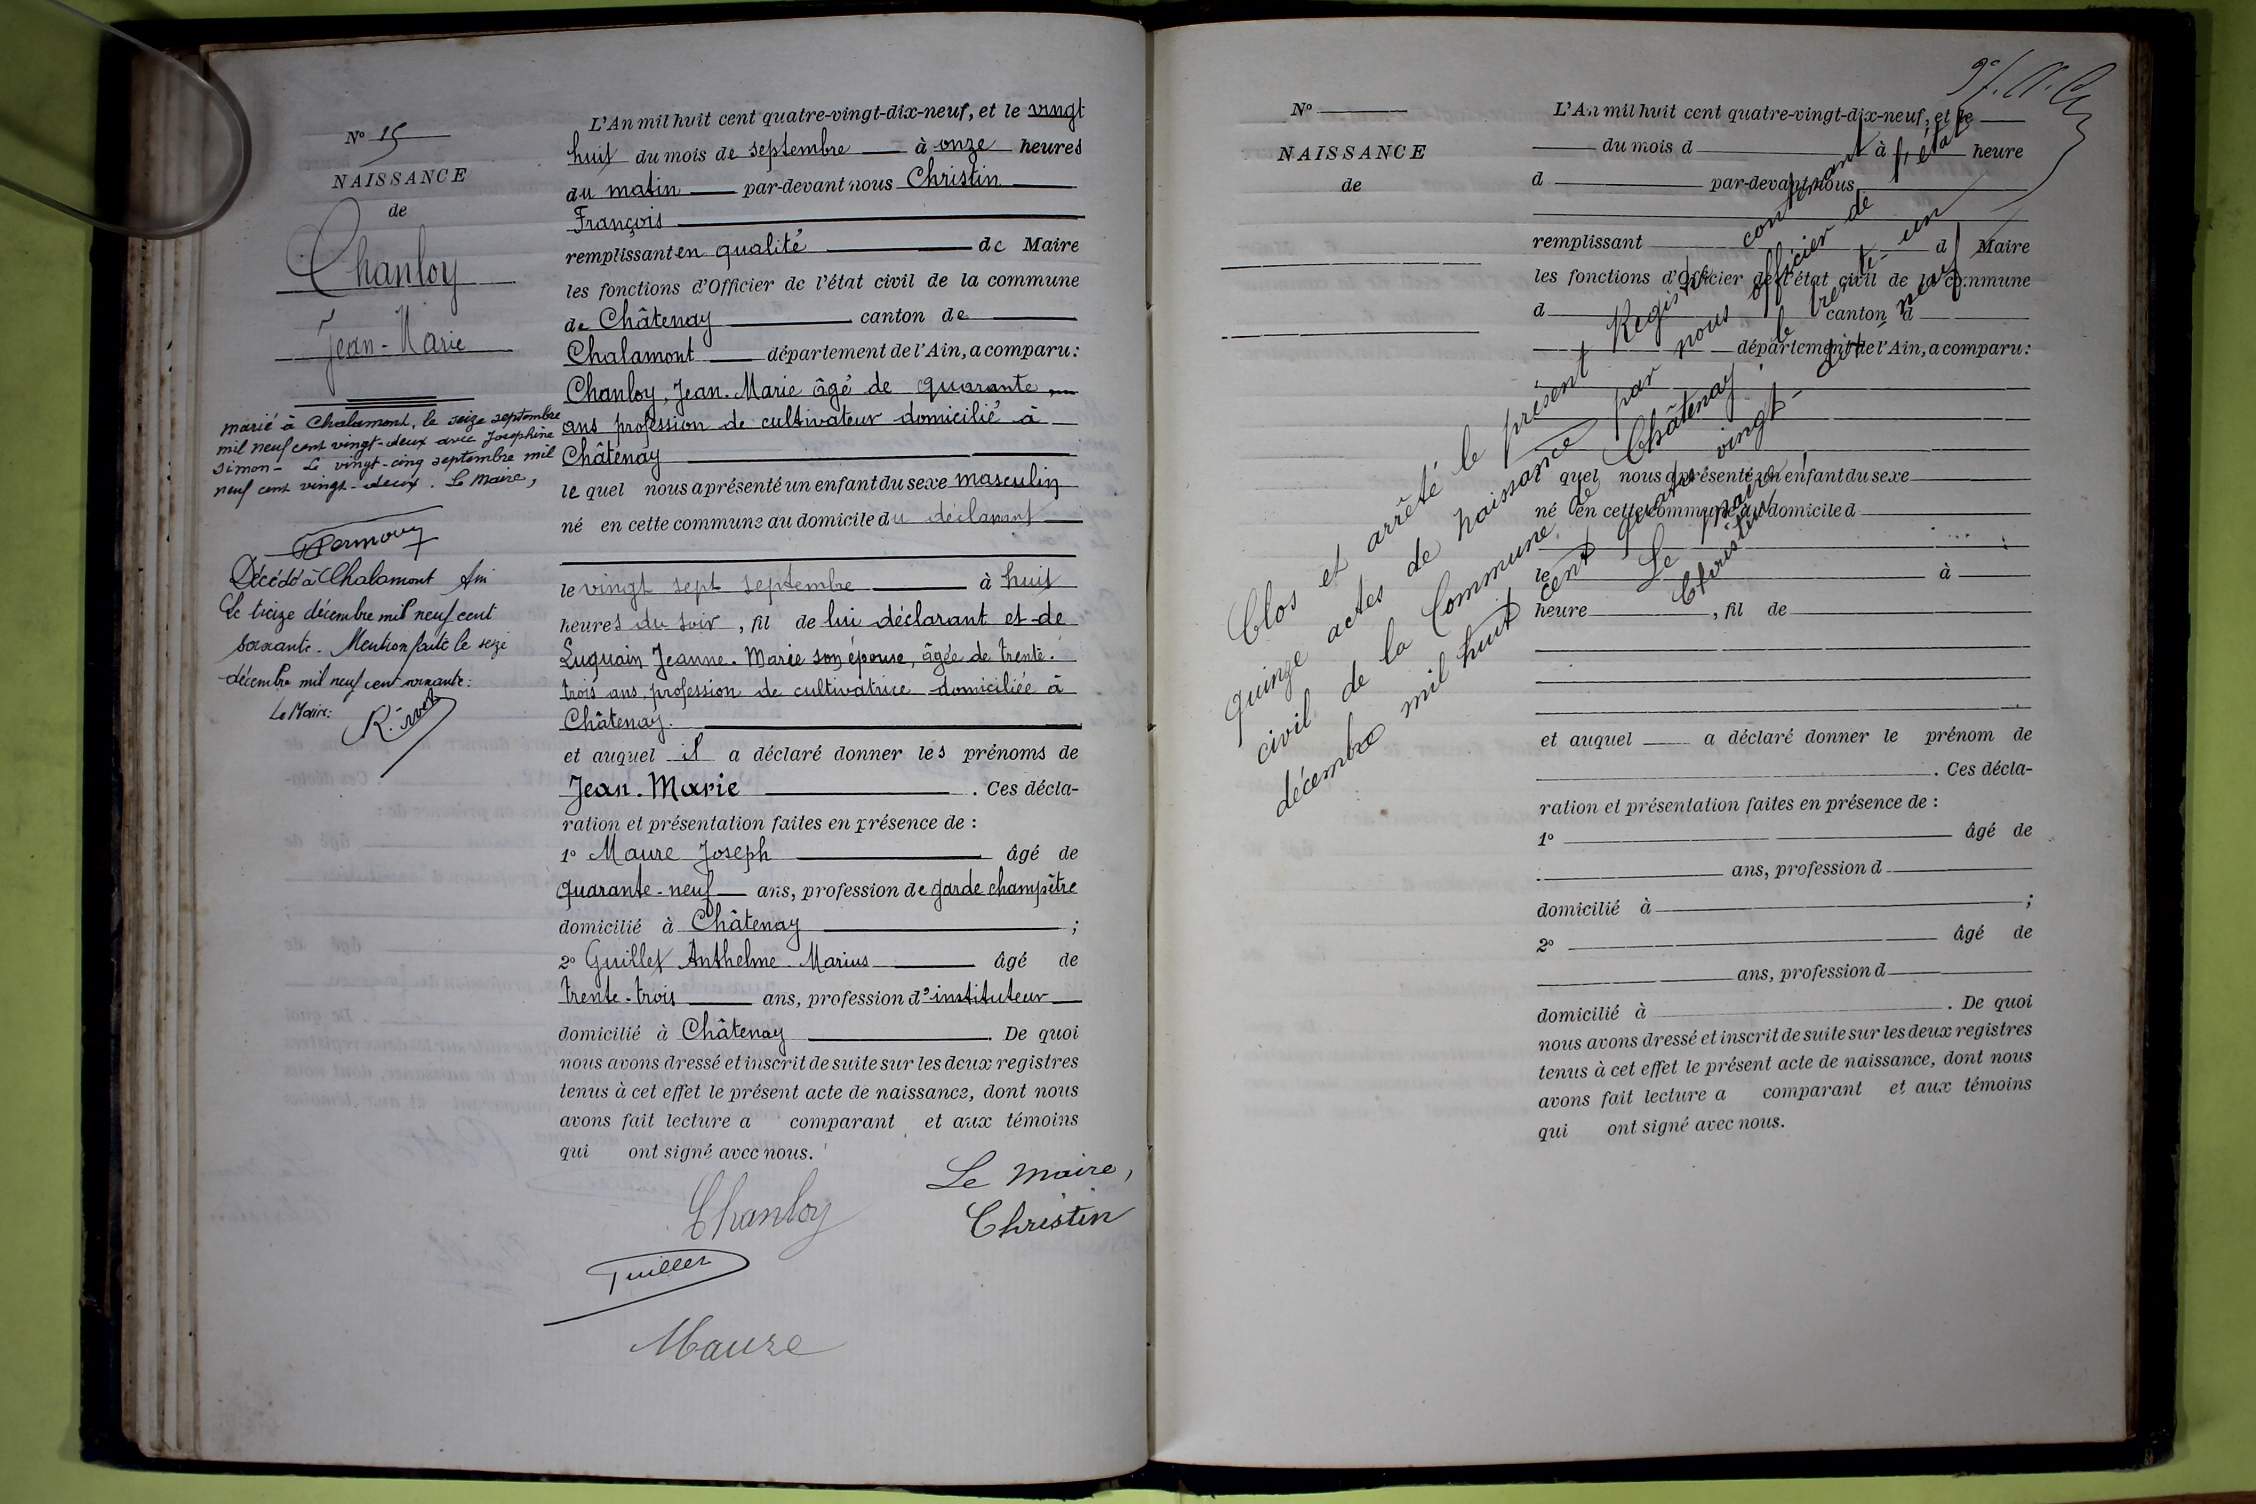 Nº 15
NAISSANCE
de
Chanloy
Jean-Marie
marié à Chalamont, le seize septembre
mil neuf cent vingt-deux avec Josephine
Simon - Le vingt-cinq septembre mil
neuf cent vingt-deux. Le Maire,
Décédé à Chalamont Ain
Le treize décembre mil neuf cent
soixante. Mention faite le seize
décembre mil neuf cent soixante:
Le Maire:
L'An mil huit cent quatre-vingt-dix-neuf, et le vingt
huit du mois de septembre à onze heures
du matin par-devant nous Christin
François
remplissant en qualité de Maire
les fonctions d'Officier de l'état civil de la commune
de Châtenay canton de
Chalamont département de l'Ain, a comparu:
Chanloy, Jean-Marie âgé de quarante un
ans profession de cultivateur domicilié à
Châtenay
le quel nous a présenté un enfant du sexe masculin
né en cette commune au domicile du déclarant
le vingt sept septembre à huit
heures du soir, fil de lui déclarant et de
Luquain Jeanne-Marie son épouse, âgée de trente-
trois ans, profession de cultivatrice domiciliée à
Châtenay.
et auquel il a déclaré donner les prénoms de
Jean-Marie. Ces décla-
ration et présentation faites en présence de:
1º Maure Joseph âgé de
quarante-neuf ans, profession de garde champêtre
domicilié à Châtenay;
2º Guillet Anthelme Marius âgé de
trente-trois ans, profession d'instituteur
domicilié à Châtenay. De quoi
nous avons dressé et inscrit de suite sur les deux registres
tenus à cet effet le présent acte de naissance, dont nous
avons fait lecture a comparant et aux témoins
qui ont signé avec nous.
Le Maire,
Chanloy
Christin
Guillet
Maure
Nº
NAISSANCE
de
L'An mil huit cent quatre-vingt-dix-neuf, et le
du mois d à heure
d par-devant nous
remplissant d Maire
les fonctions d'Officier de l'état civil de la commune
d canton d
département de l'Ain, a comparu:
quel nous a présenté un enfant du sexe
né en cette commune au domicile d
le à
heure, fil de
et auquel a déclaré donner le prénom de
. Ces décla-
ration et présentation faites en présence de:
1º âgé de
ans, profession d
domicilié à ;
2º âgé de
ans, profession d
domicilié à . De quoi
nous avons dressé et inscrit de suite sur les deux registres
tenus à cet effet le présent acte de naissance, dont nous
avons fait lecture a comparant et aux témoins
qui ont signé avec nous.
Clos et arrêté le présent Registre contenant
quinze actes de naissance par nous officier de l'état
civil de la Commune de Châtenay, le trente-un
décembre mil huit cent quatre vingt-dix-neuf
Le Maire,
Christin